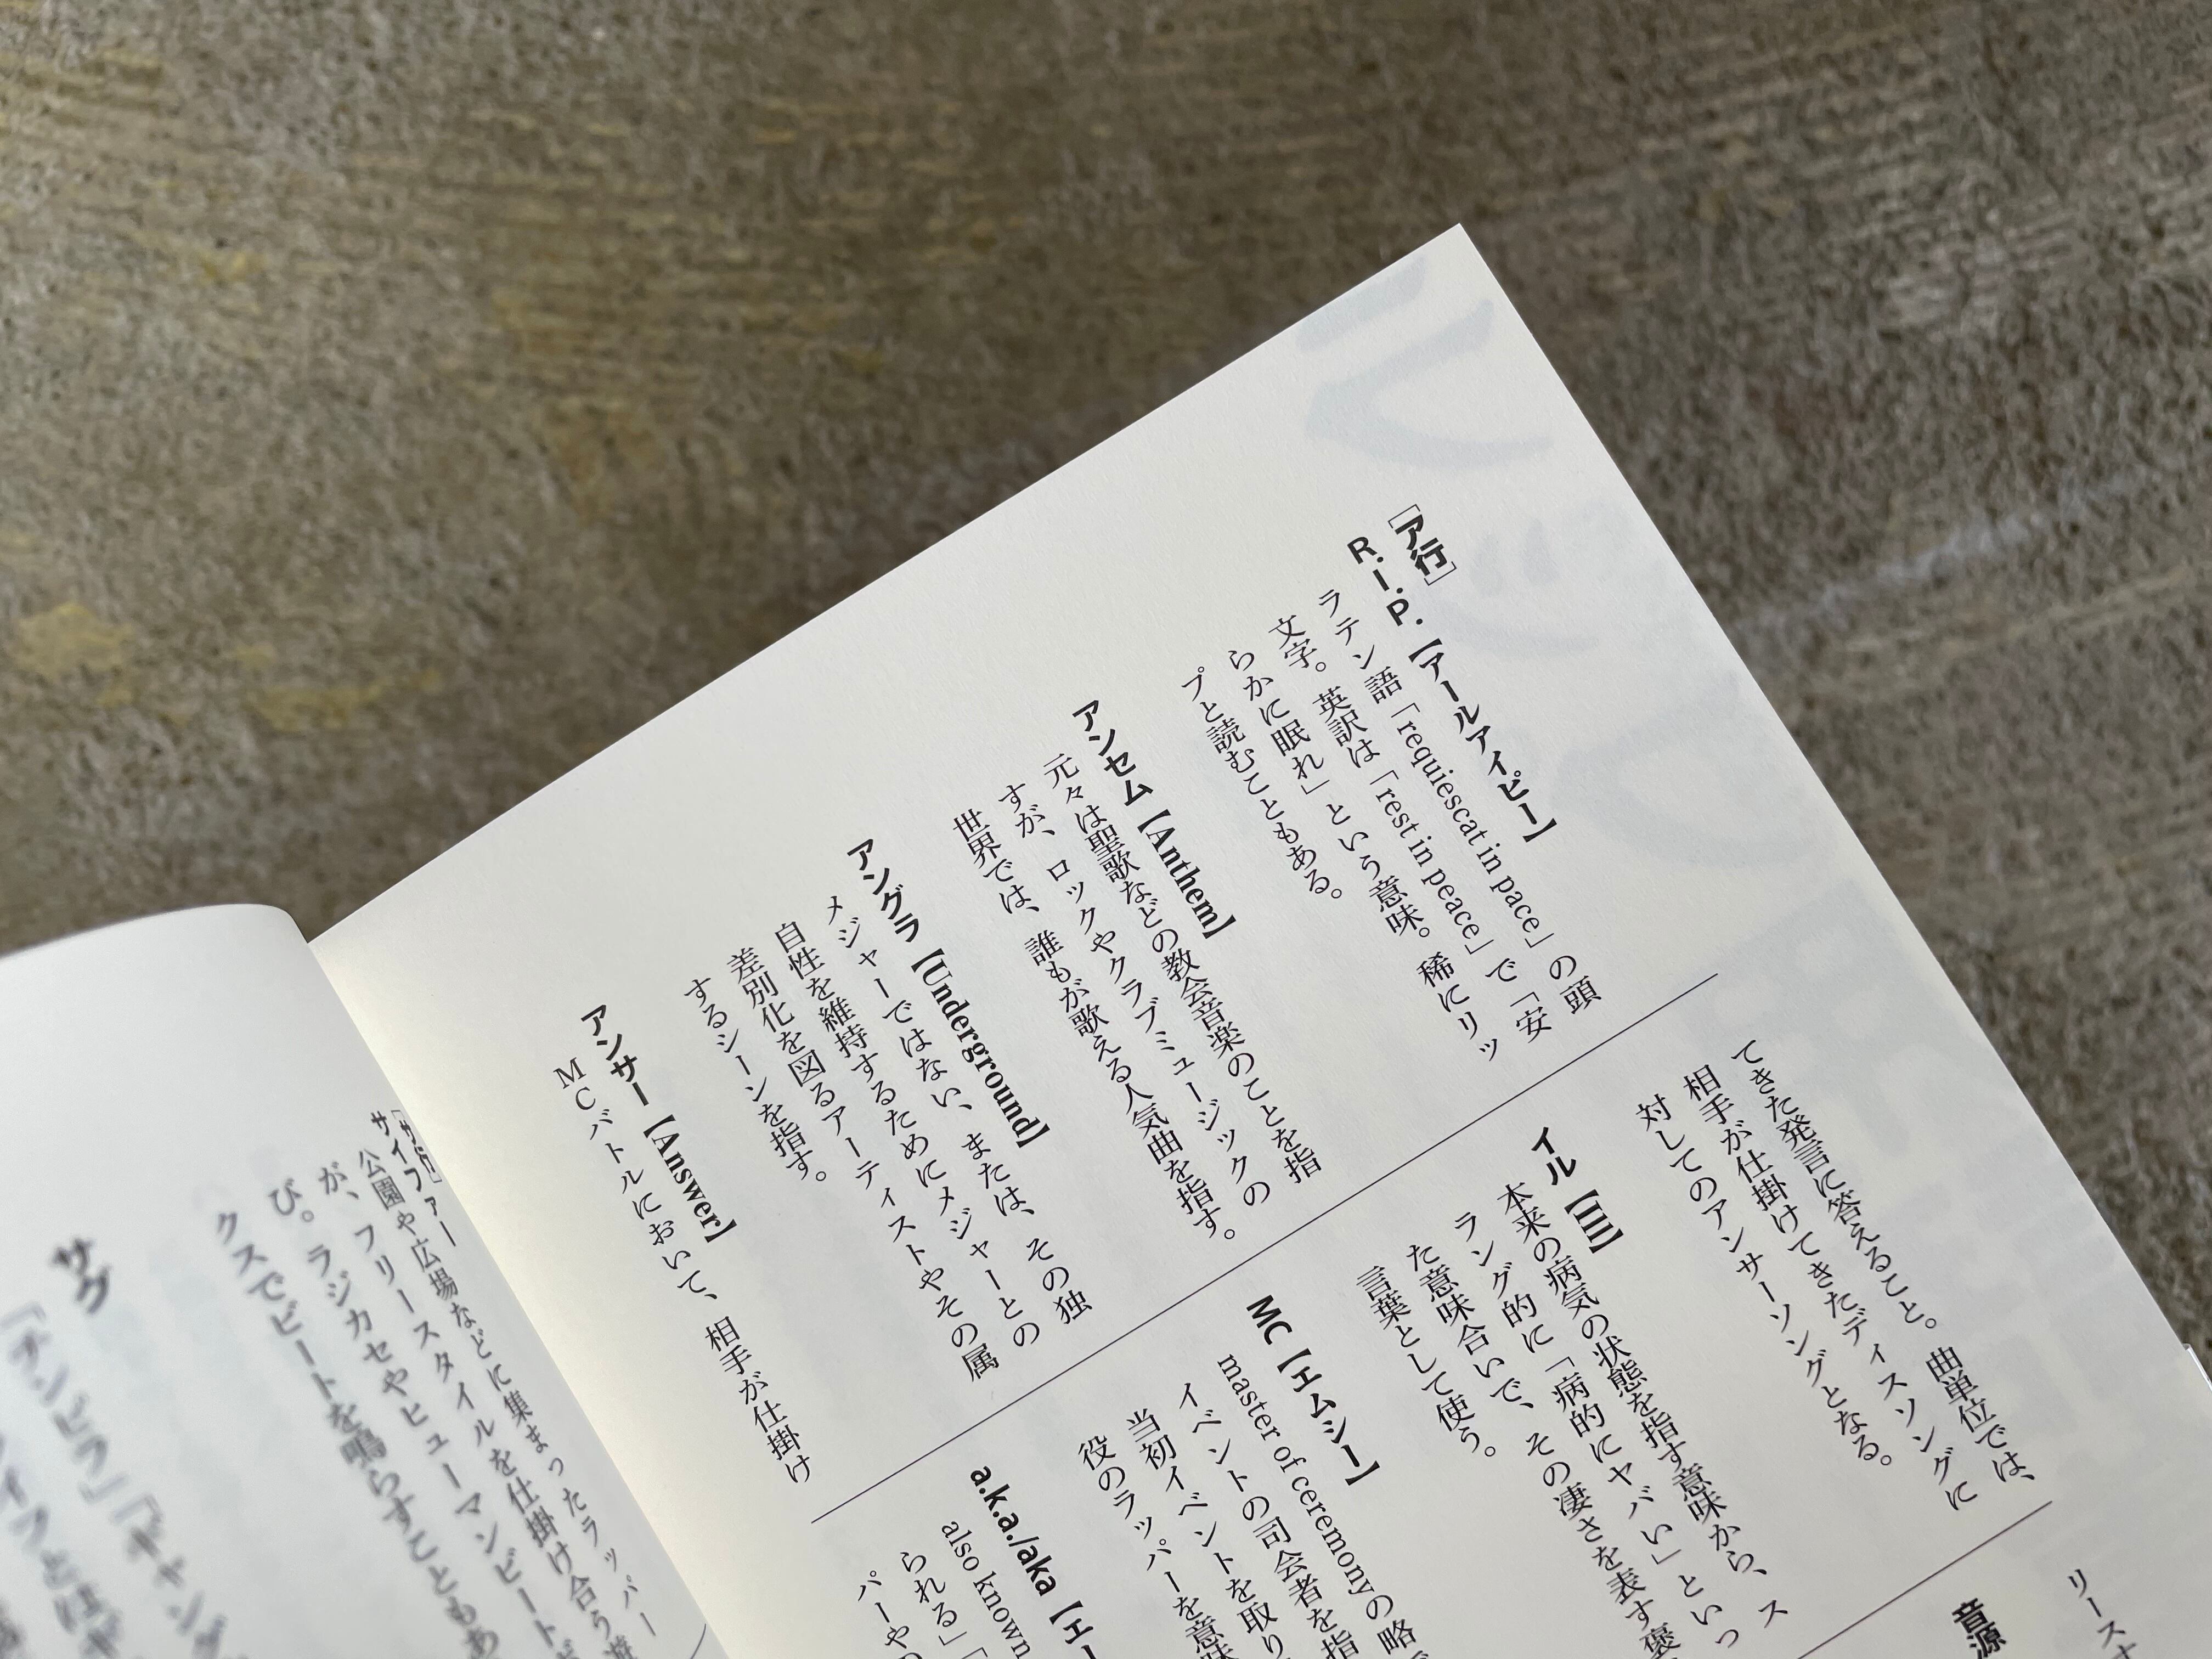 ［ア行］
R.I.P.【アールアイピー】
ラテン語「requiescat in pace」の頭
文字。英訳は「rest in peace」で「安
らかに眠れ」という意味。稀にリッ
プと読むこともある。
アンセム【Anthem】
元々は聖歌などの教会音楽のことを指
すが、ロックやクラブミュージックの
世界では、誰もが歌える人気曲を指す。
アングラ【Underground】
メジャーではない、または、その独
自性を維持するためにメジャーとの
差別化を図るアーティストやその属
するシーンを指す。
アンサー【Answer】
MCバトルにおいて、相手が仕掛け
てきた発言に答えること。曲単位では、
相手が仕掛けてきたディスソングに
対してのアンサーソングとなる。
イル【Ill】
本来の病気の状態を指す意味から、ス
ラング的に「病的にヤバい」といっ
た意味合いで、その凄さを表す褒
言葉として使う。
MC【エムシー】
master of ceremonyの略
イベントの司会者を指
当初イベントを取り
役のラッパーを意味
a.k.a./aka【エー
also known
られる」「
パーや
リース
音源
［サ行］
サイファー
公園や広場などに集まったラッパー
が、フリースタイルを仕掛け合う遊
び。ラジカセやヒューマンビート
クスでビートを鳴らすこともあ
サグ
「チンピラ」「ギャング
イフとは